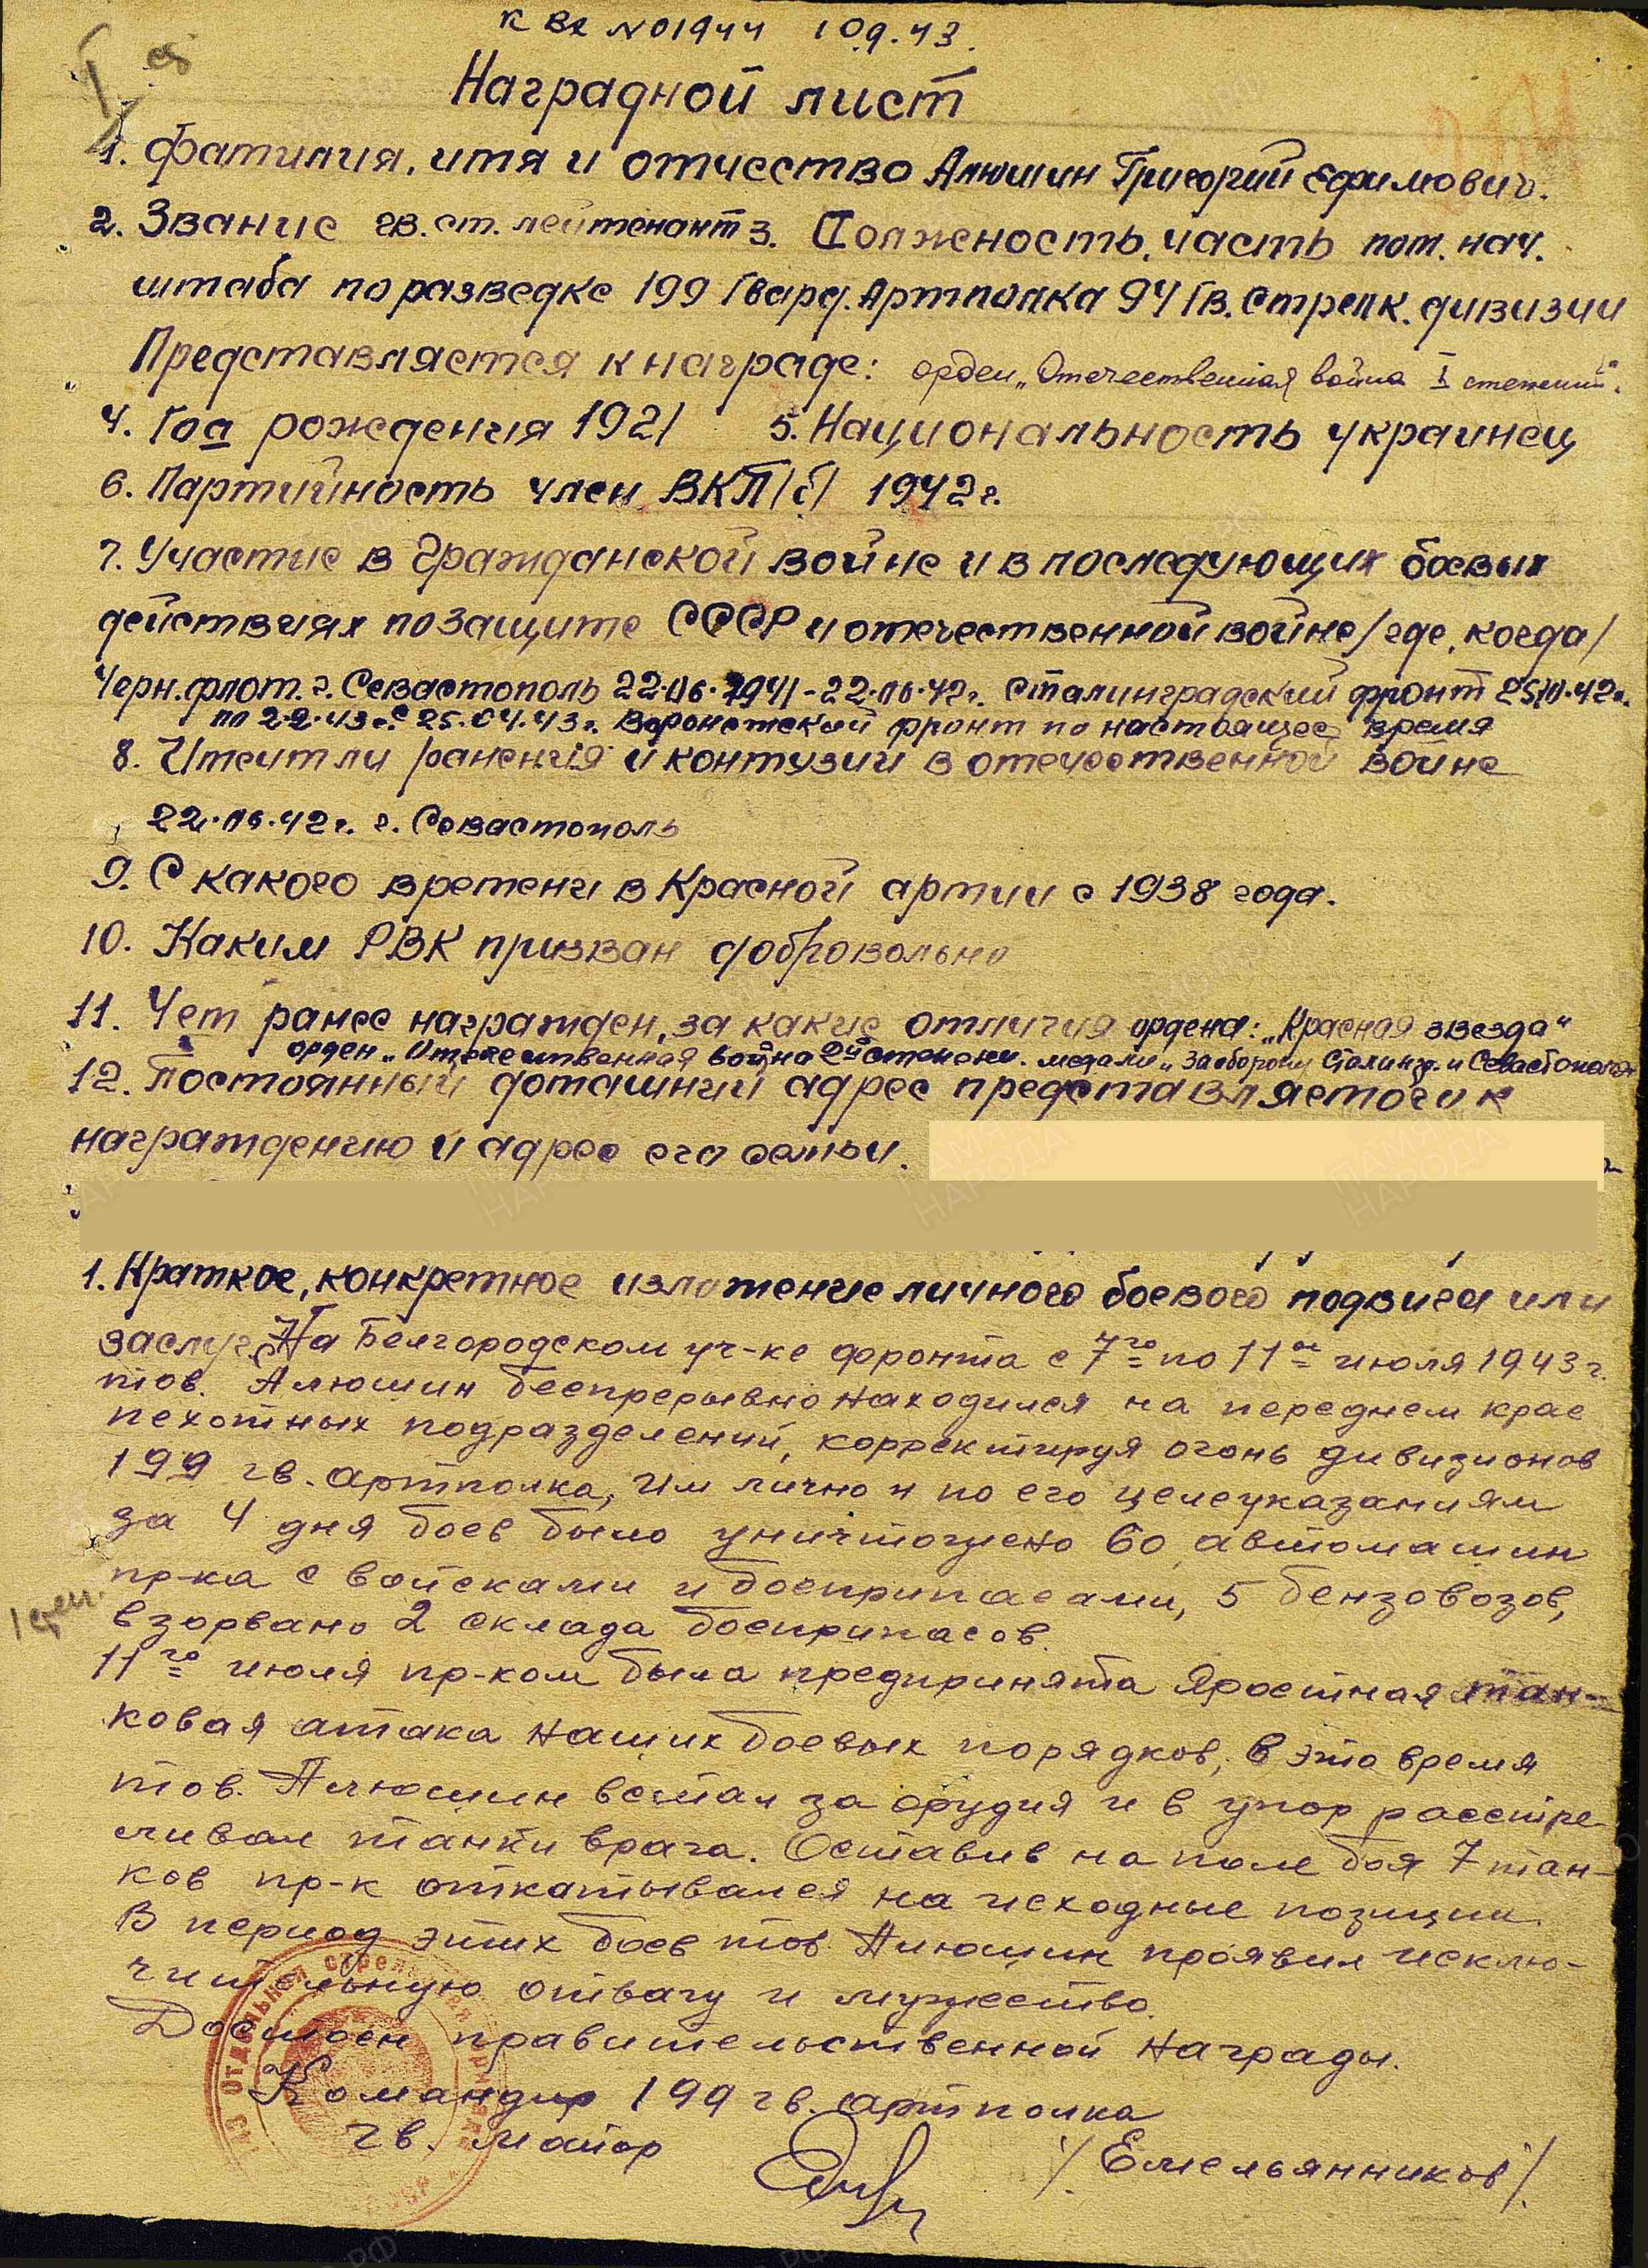 к Вх №01944 10.9.43.
Наградной лист
1. Фамилия, имя и отчество Алюшин Григорий Ефимович.
2. Звание гв. ст. лейтенант 3. Должность, часть пом. нач.
штаба по разведке 199 Гвард. Артполка 94 Гв. Стрелк. дивизии
Представляется к награде: орден „Отечественная война I степени".
4. Год рождения 1921 5. Национальность украинец
6. Партийность член ВКП/б/ 1942 г.
7. Участие в Гражданской войне и в последующих боевых
действиях по защите СССР и отечественной войне/где, когда/
Черн. флот. г. Севастополь 22.06.1941-22.06.42г. Сталинградский фронт 25.10.42г.
по 2.2.43г. с 25.04.43г. Воронежский фронт по настоящее время
8. Имеит ли ранения и контузии в отечественной войне
22.06.42г. г. Севастополь
9. С какого времени в Красной армии с 1938 года.
10. Каким РВК призван добровольно
11. Чем ранее награжден, за какие отличия ордена: „Красная звезда"
орден „Отечественная война 2й степени. медали „За оборону Сталингр. и Севастополя
12. Постоянный домашний адрес представляемого к
награждению и адрес его семьи.
1. Краткое, конкретное изложение личного боевого подвига или
заслуг. На Белгородском уч-ке фронта с 7го по 11ое июля 1943 г.
тов. Алюшин беспрерывно находился на переднем крае
пехотных подразделений, корректируя огонь дивизионов
199 гв. артполка, им лично и по его целеуказаниям
за 4 дня боев было уничтожено 60 автомашин
пр-ка с войсками и боеприпасами, 5 бензовозов,
взорвано 2 склада боеприпасов.
1 степ.
11го июля пр-ком была предпринята яростная тан-
ковая атака наших боевых порядков, в это время
тов. Алюшин встал за орудия и в упор расстре-
ливал танки врага. Оставив на поле боя 7 тан-
ков пр-к откатывался на исходные позиции.
В период этих боев тов. Алюшин проявил исклю-
чительную отвагу и мужество.
Достоен правительственной награды.
Командир 199 гв. артполка
гв. майор /Емельянников/.